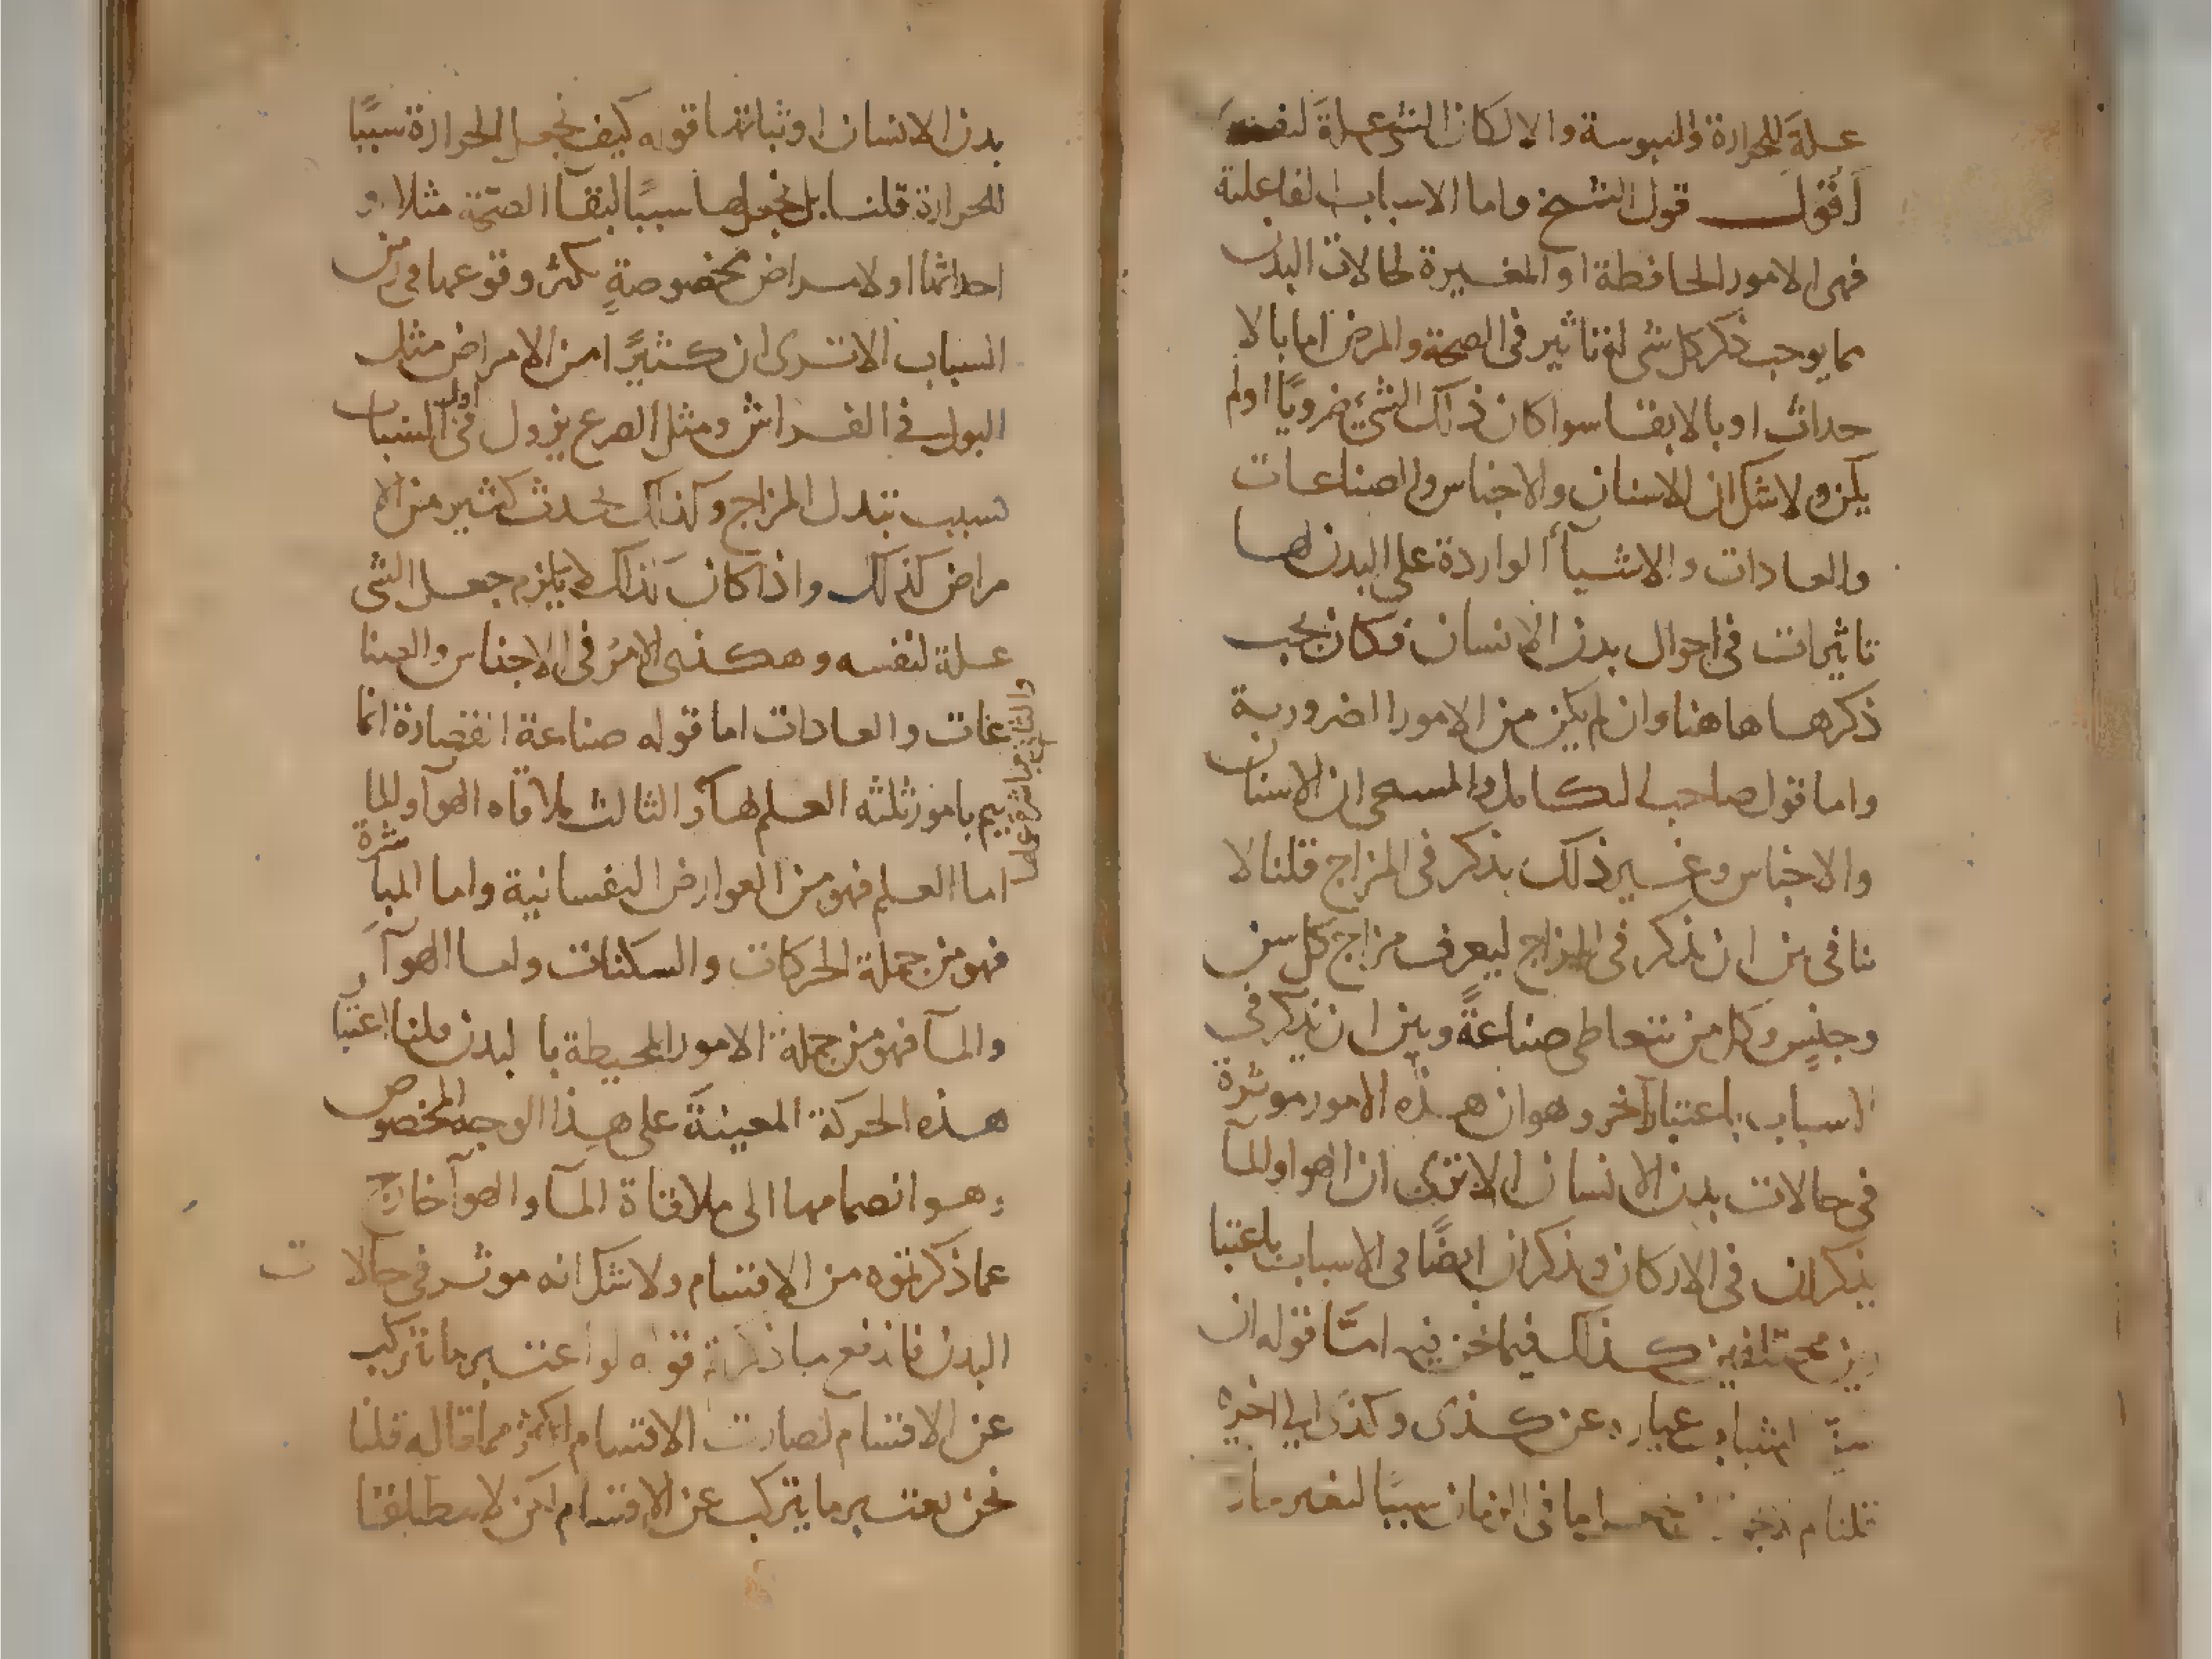 علة للحرارة واليبوسة والا لكان الشى علة لنفسه
أقول قول الشيخ واما الاسباب الفاعلية
فهى الامور الحافظة او المغيرة لحالات البدن
مما يوجب ذكر كل شى له تاثير فى الصحة والمرض اما بالا
حداث او بالابقا سوا كان ذلك الشئ ضروريًا او لم
يكن ولا شك ان للاسنان والاجناس والصناعات
والعادات والاشيآأ الواردة على البدن لها
تاثيرات فى احوال بدن الانسان فكان يجب
ذكرها هاهنا وان لم يكن من الامور الضرورية
واما قول صاحب الكامل والمسيحى ان الاسنان
والاجناس وغير ذلك يذكر فى المزاج قلنا لا
تنافى بين ان نذكر فى المزاج ليعرف مزاج كل سن
وجنسٍ وكل من يتعاطى صناعةً وبين ان نذكر فى
الاسباب باعتبار آخر وهو ان هذه الامور موثرة
فى حالات بدن الانسان الا ترى ان الهوا والمآ
يذكران فى الاركان ويذكران ايضًا فى الاسباب باعتبا
رين مختلفين كذلك فيما نحن فيه امَّا قوله ان
سن الشباب عباره عن كذى وكذى الى اخره
قلنا م نحن ما فى الزمان سببًا لتغير ما
بدن الانسان او ثباتها قوله كيف نجعل الحرارة سببًا
للحرارة قلنا بل نجعلها سببًا لبقآ الصحّة مثلا و
احداثها او لامراض مخصوصةٍ يكثر وقوعها فى زمن
الشباب الا ترى ان كثيرًا من الامراض مثل
البول فى الفراش ومثل الصرع يزول فى اول الشباب
بسبب تبدل المزاج وكذلك تحدث كثير من الا
مراض كذلك واذا كان كذلك لا يلزم جعل الشى
علة لنفسه وهكذى الامر فى الاجناس والصنا
عات والعادات اما قوله صناعة القصارة انما
يتم بامور ثلثه العلم بها والثالث ملاقاه الهوآ والمآ
والثانى مباشرة عملها
اما العلم فهو من العوارض النفسانية واما المباشرة
فهو من جملة الحركات والسكنات واما الهوآ
والمآ فهو من جملة الامور المحيطة بالبدن قلنا اعتبار
هذه الحركة المعينة على هذا الوجه المخصوص
وهو انضمامها الى ملاقاة المآ والهوآ خارج
عما ذكرتموه من الاقسام ولا شك انه موثر فى حالات
البدن فاندفع ما ذكرته قوله لو اعتبر ما تركب
عن الاقسام لصارت الاقسام اكثر مما قاله قلنا
نحن نعتبر ما يتركب عن الاقسام لكن لا مطلقا